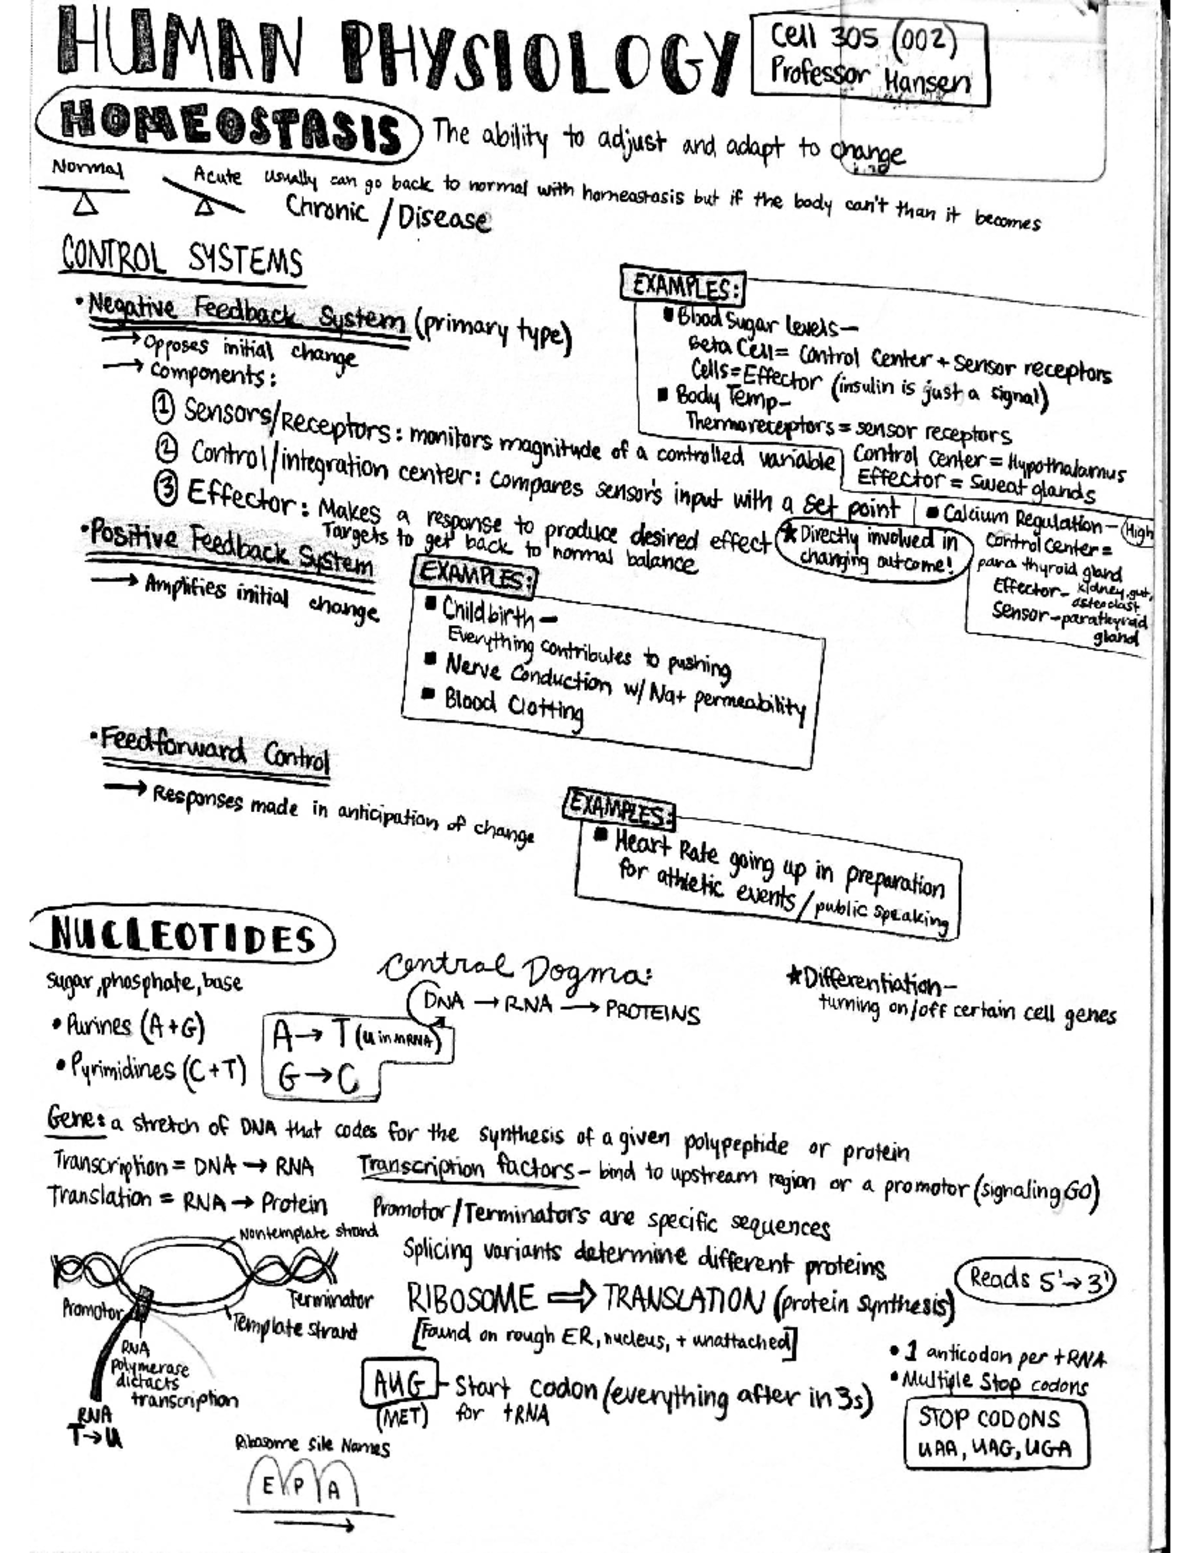 HUMAN PHYSIOLOGY
Cell 305 (002)
Professor Hansen
HOMEOSTASIS
The ability to adjust and adapt to change
Normal
Acute usually can go back to normal with homeostasis but if the body can't than it becomes
Chronic / Disease
CONTROL SYSTEMS
• Negative Feedback System (primary type)
→ Opposes initial change
→ Components:
① Sensors/Receptors: monitors magnitude of a controlled variable
② Control/integration center: compares sensor's input with a set point
③ Effector: Makes a response to produce desired effect
Targets to get back to normal balance
★ Directly involved in
changing outcome!
EXAMPLES:
▪ Blood Sugar Levels—
Beta Cell = Control Center + Sensor receptors
Cells = Effector (insulin is just a signal)
▪ Body Temp—
Thermoreceptors = sensor receptors
Control Center = Hypothalamus
Effector = Sweat glands
▪ Calcium Regulation— High
Control center =
para thyroid gland
Effector— kidney, gut,
osteoclast
Sensor—parathyroid
gland
• Positive Feedback System
→ Amplifies initial change
EXAMPLES:
▪ Childbirth—
Everything contributes to pushing
▪ Nerve Conduction w/ Na+ permeability
▪ Blood Clotting
• Feedforward Control
→ Responses made in anticipation of change
EXAMPLES:
▪ Heart Rate going up in preparation
for athletic events / public speaking
NUCLEOTIDES
Sugar, phosphate, base
• Purines (A+G)
• Pyrimidines (C+T)
A → T (U in mRNA)
G → C
Central Dogma:
DNA → RNA → PROTEINS
★ Differentiation—
turning on/off certain cell genes
Gene: a stretch of DNA that codes for the synthesis of a given polypeptide or protein
Transcription = DNA → RNA
Transcription factors— bind to upstream region or a promotor (signaling GO)
Translation = RNA → Protein
Promotor/Terminators are specific sequences
Splicing variants determine different proteins
Nontemplate strand
Promotor
Terminator
Template strand
RNA
polymerase
dictacts
transcription
RNA
T→U
RIBOSOME ⇒ TRANSLATION (protein synthesis)
[Found on rough ER, nucleus, + unattached]
Reads 5'→3'
AUG — Start codon (everything after in 3s)
(MET) for tRNA
• 1 anticodon per tRNA
• Multiple Stop codons
STOP CODONS
UAA, UAG, UGA
Ribosome Site Names
E P A